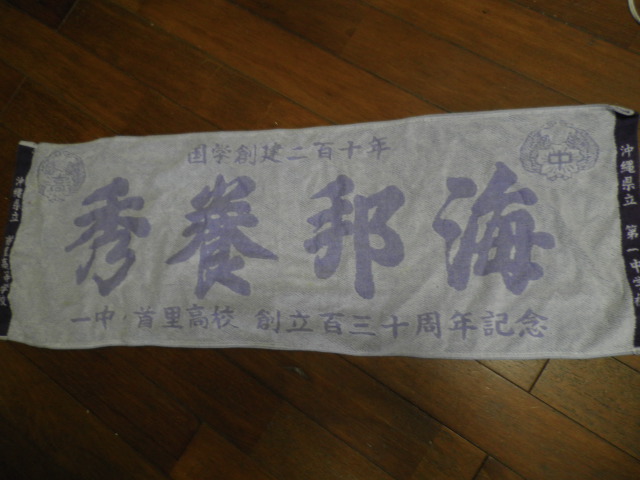 国学創建二百十年
秀養邦海
一中・首里高校 創立百三十周年記念
中
沖縄県立 第一中学
沖縄県立